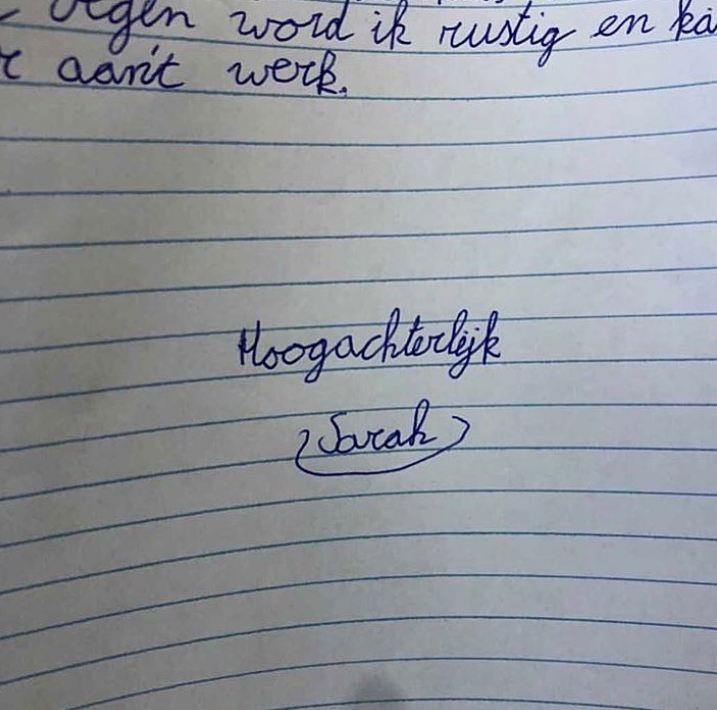 regen word ik rustig en ka
aan't werk.
Hoogachterlijk
Sarah